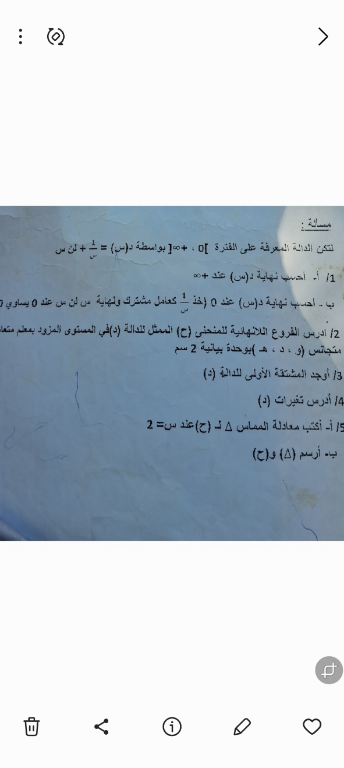 مسألة :
لتكن الدالة المعرفة على الفترة ]0 ، +∞[ بواسطة د(س) = 1/س + لن س
1/ أ- أحسب نهاية د(س) عند +∞
ب - أحسب نهاية د(س) عند 0 (خذ 1/س كعامل مشترك ونهاية س لن س عند 0 يساوي 0
2/ أدرس الفروع اللانهائية للمنحنى (ح) الممثل للدالة (د)في المستوى المزود بمعلم متعا
متجانس (و ، د ، هـ )بوحدة بيانية 2 سم
3/ أوجد المشتقة الأولى للدالة (د)
4/ أدرس تغيرات (د)
5/ أ- أكتب معادلة المماس Δ لـ (ح)عند س= 2
ب- أرسم (Δ) و(ح)